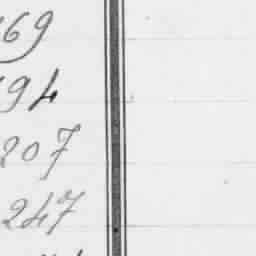 69
94
207
247